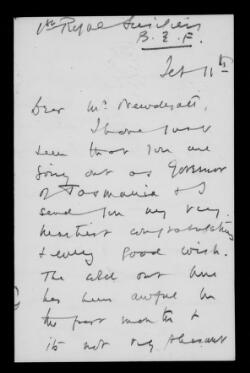 1st Royal Fusiliers
B.E.F.
Feb 11th
Dear Mr Newdegate,
I have just
seen that you are
going out as Governor
of Tasmania & I
send you my very
heartiest congratulations
& every good wish.
The cold out here
has been awful for
the past month &
it's not very pleasant